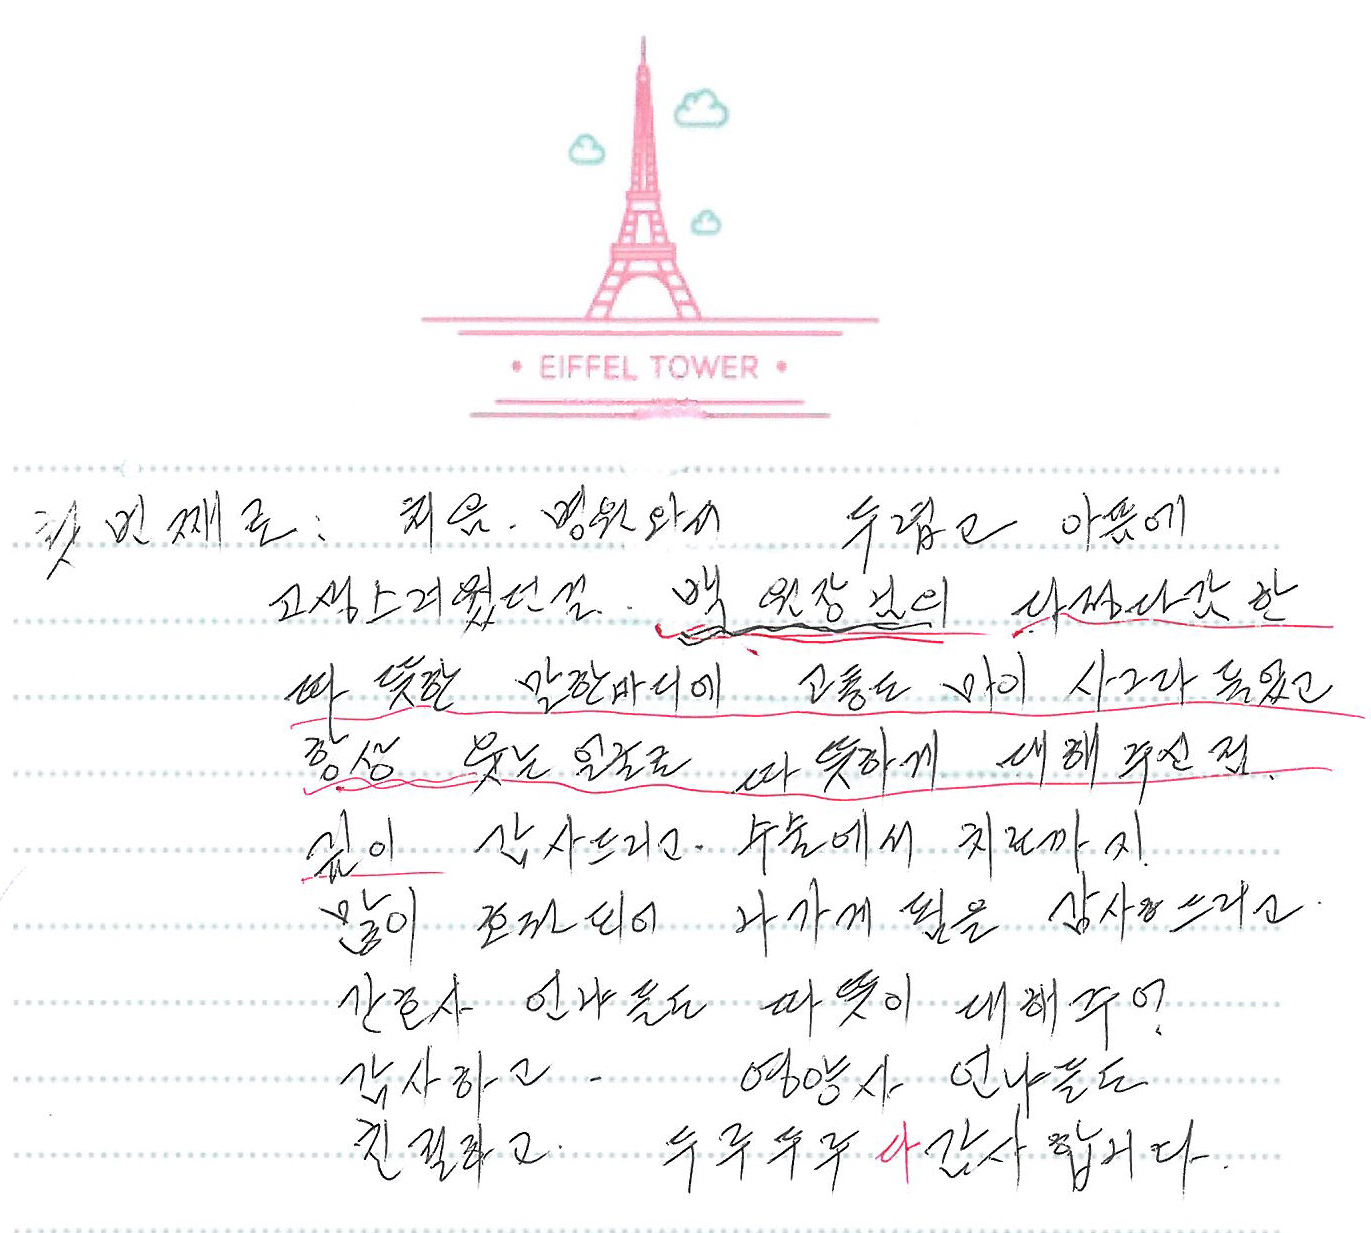 • EIFFEL TOWER •
첫번째로: 처음. 병원와서 두렵고 아픔에
고생스러웠던걸.. 백 원장님의 다정다감한
따뜻한 말한마디에 고통도 많이 사그라 들었고
항상 웃는 얼굴로 따뜻하게 대해 주신 점.
깊이 감사드리고. 수술에서 치료까지
많이 호전되어 나가게 됨을 감사드리고.
간호사 언니들도 따뜻이 대해주어
감사하고. 영양사 언니들도
친절하고. 두루두루 다 감사합니다.